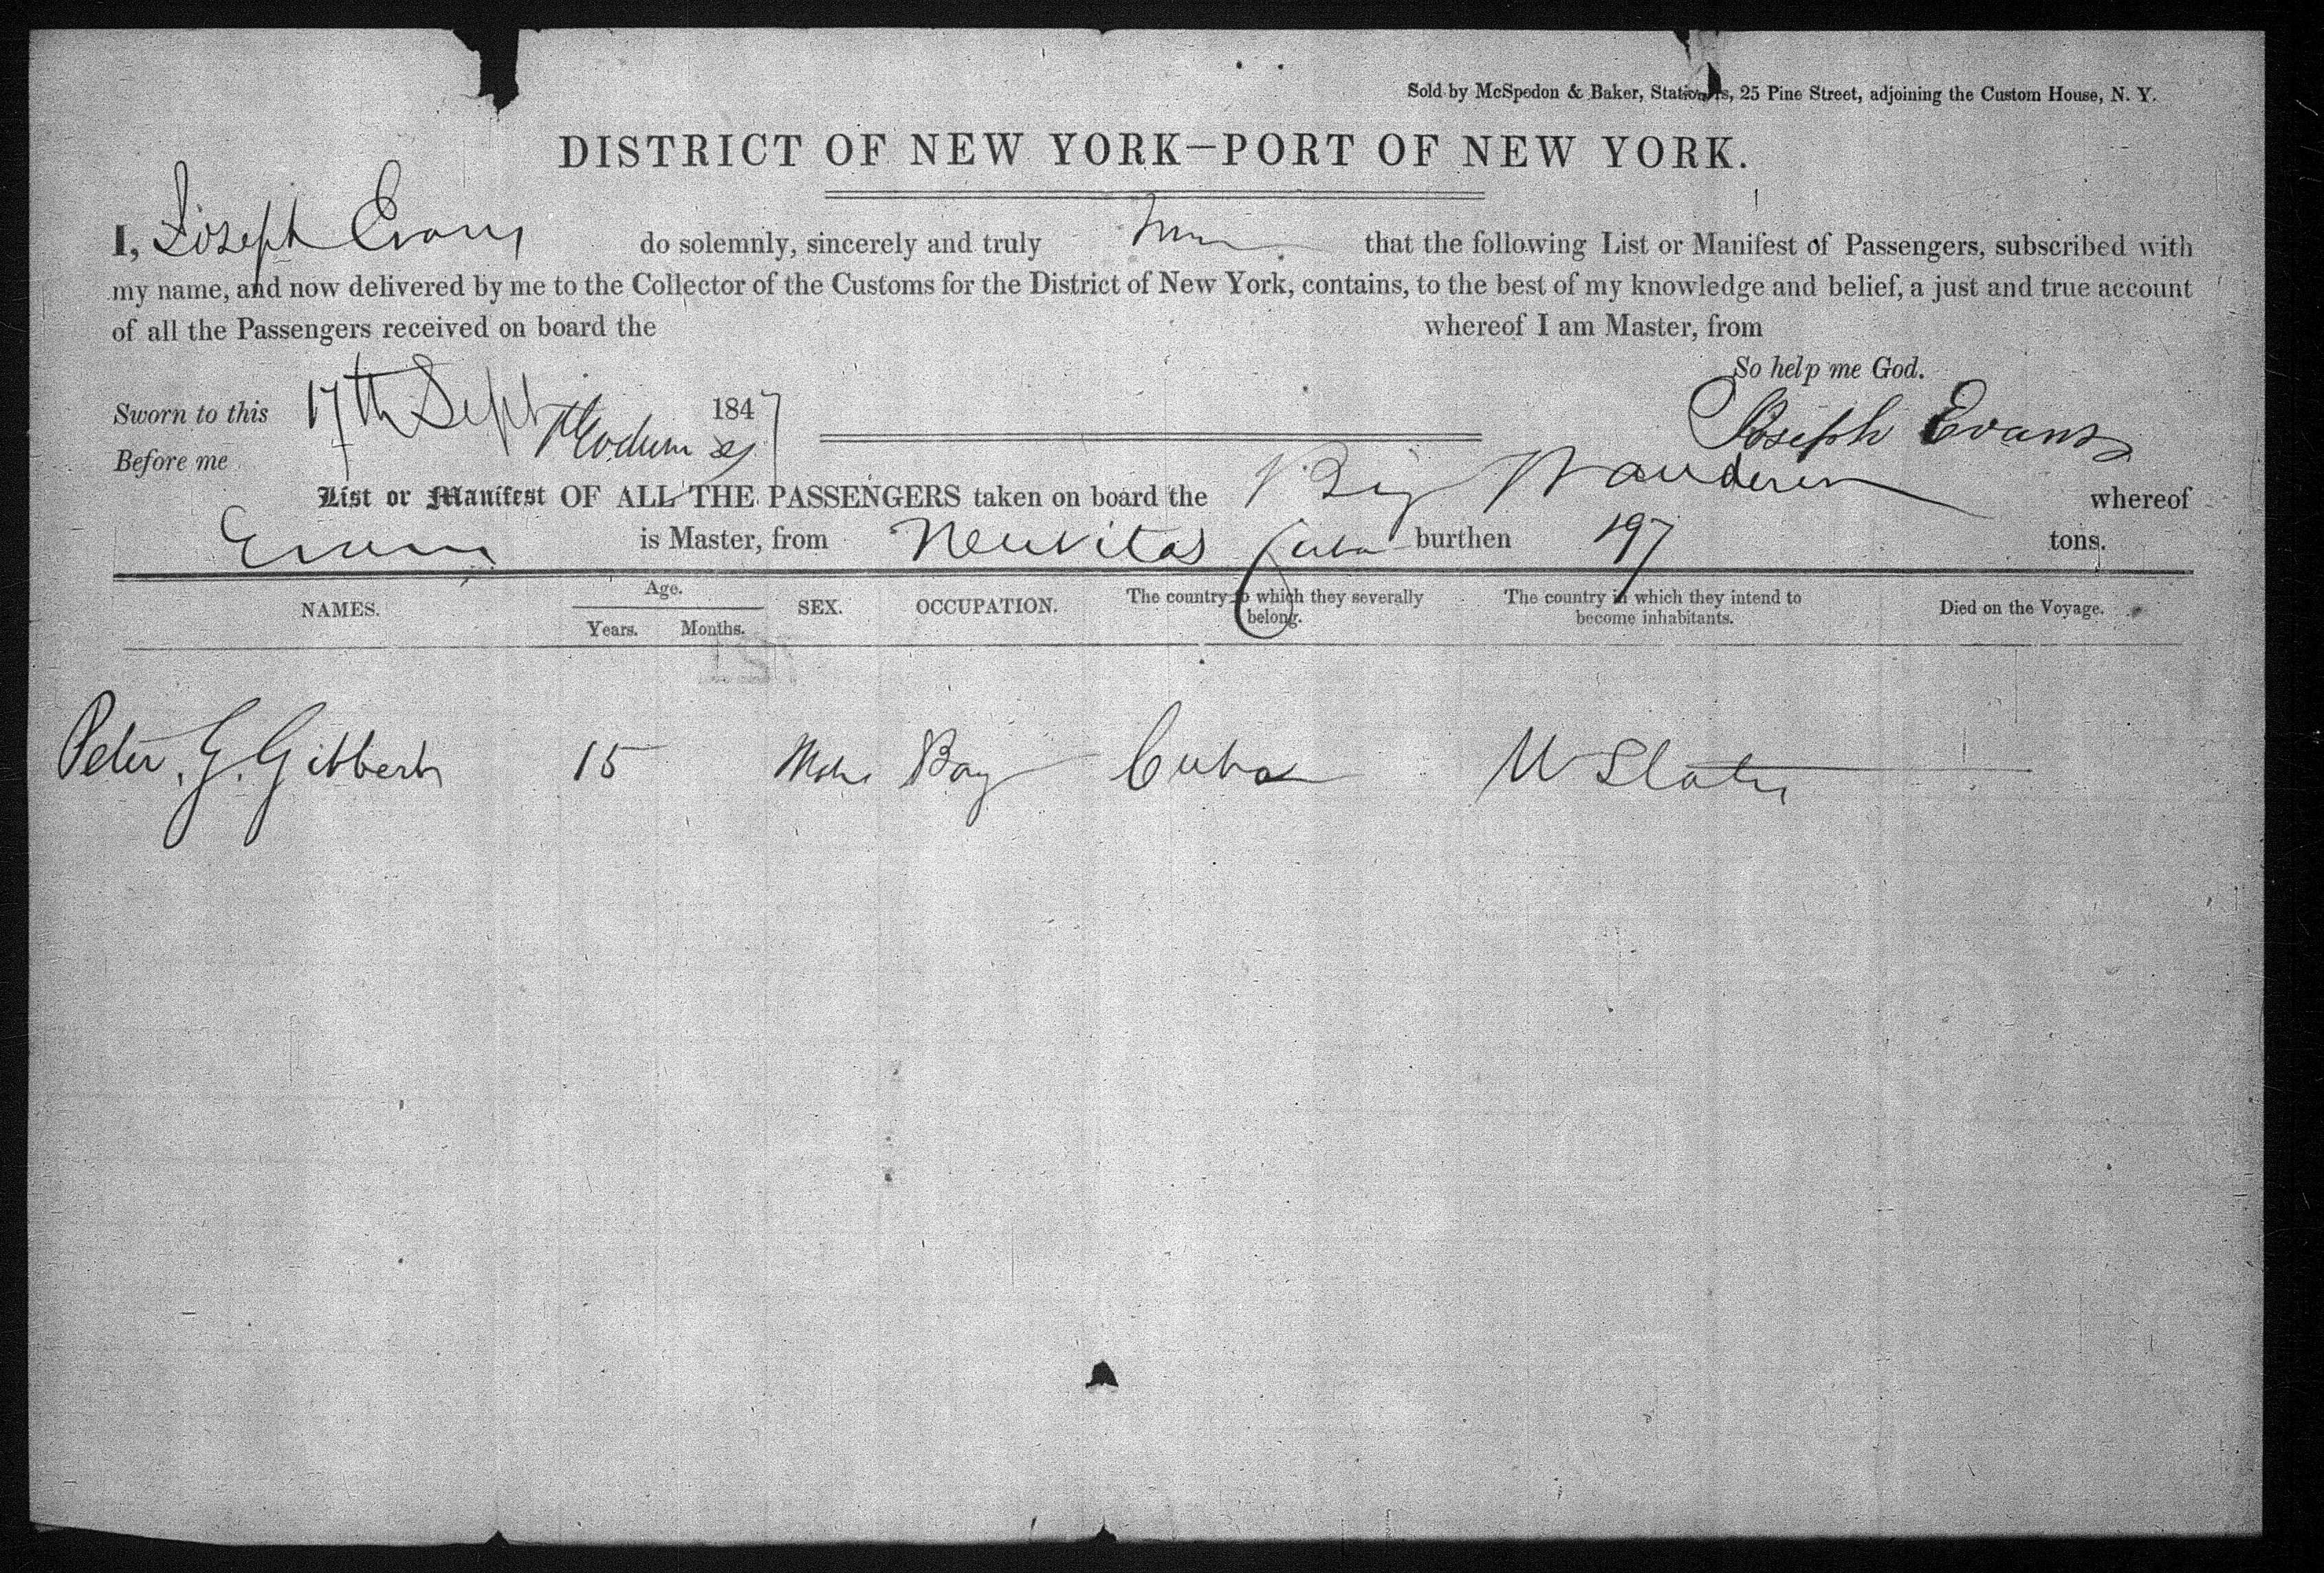 Sold by McSpedon & Baker, Stationers, 25 Pine Street, adjoining the Custom House, N. Y.
DISTRICT OF NEW YORK—PORT OF NEW YORK.
I, Joseph Evans do solemnly, sincerely and truly that the following List or Manifest of Passengers, subscribed with
my name, and now delivered by me to the Collector of the Customs for the District of New York, contains, to the best of my knowledge and belief, a just and true account
of all the Passengers received on board the whereof I am Master, from
So help me God.
Sworn to this 17th Sept 1847
Joseph Evans
Before me
List or Manifest OF ALL THE PASSENGERS taken on board the Brig Wanderer whereof
Evans is Master, from Neuvitas Cuba burthen 197 tons.
NAMES. Age. Years. Months. SEX. OCCUPATION. The country to which they severally belong. The country in which they intend to become inhabitants. Died on the Voyage.
Peter. G. Gibbert 15 Male Boy Cuba U States